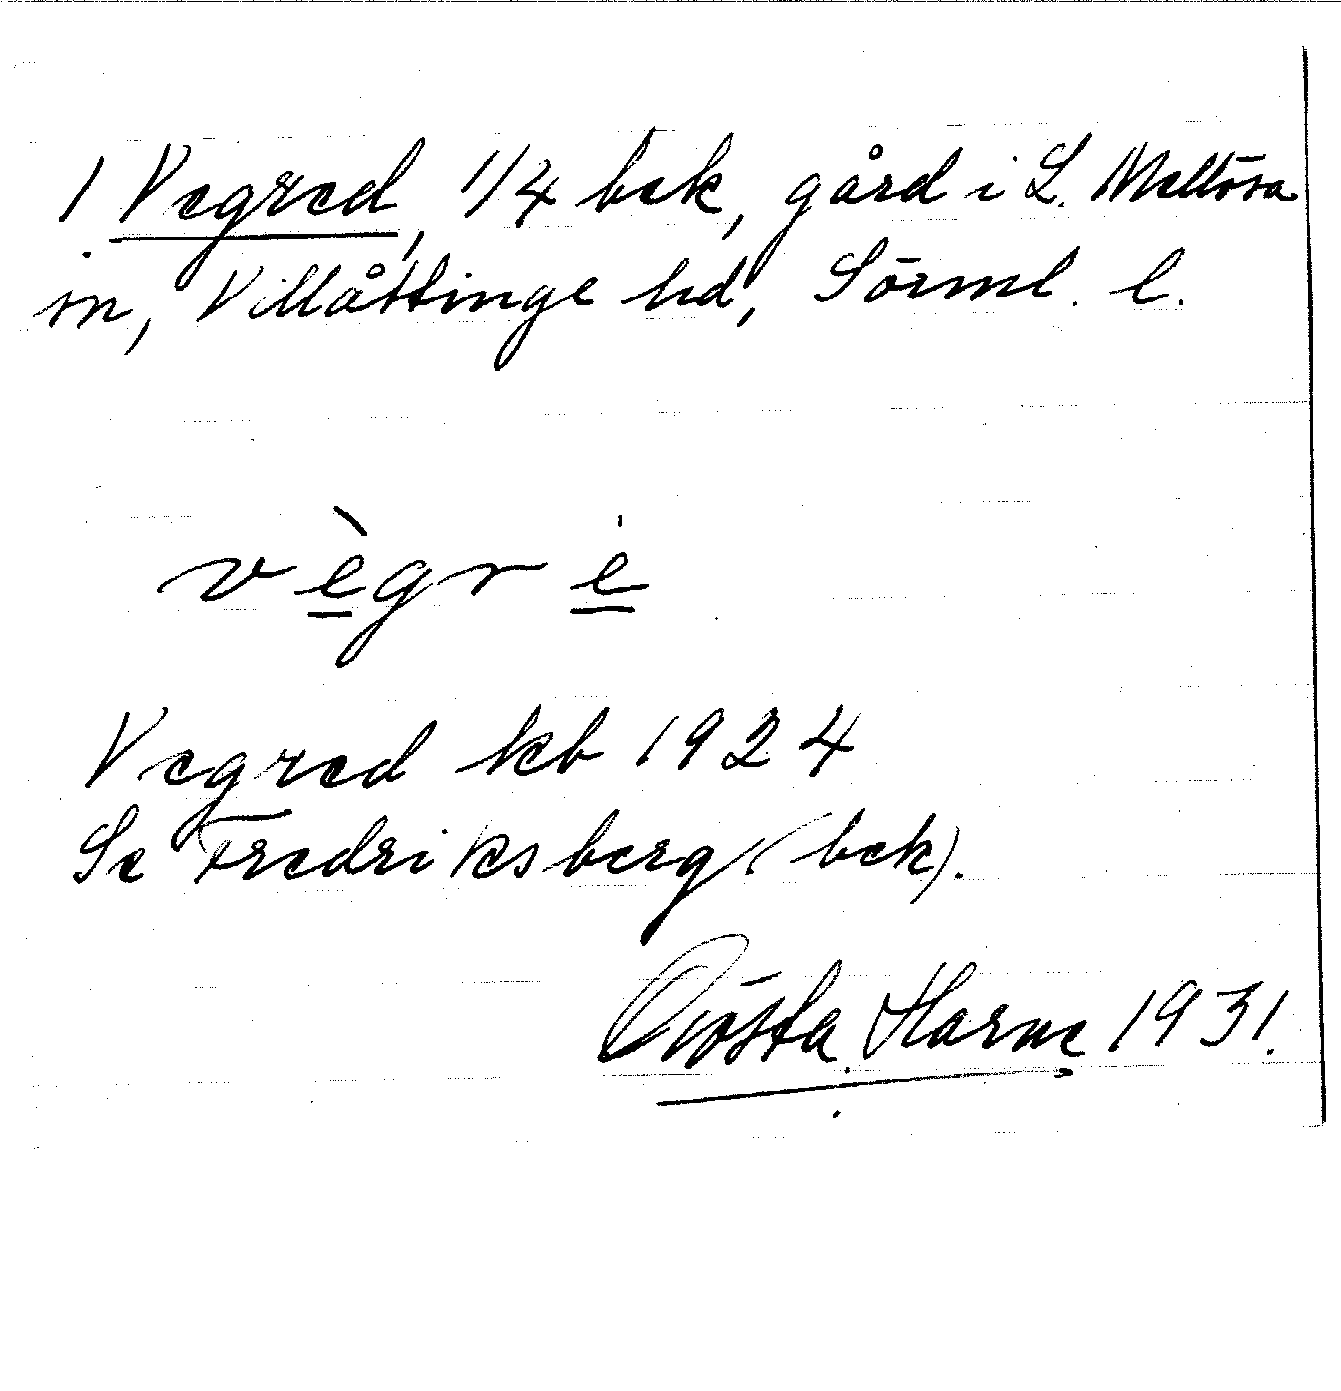 1 Vegred, 1/4 bek, gård i L. Mellösa
sn, Villåttinge hd, Sörml. l.
vègrė
Vegred kb 1924
Se Fredriksberg (bek).
Gösta Harne 1931.